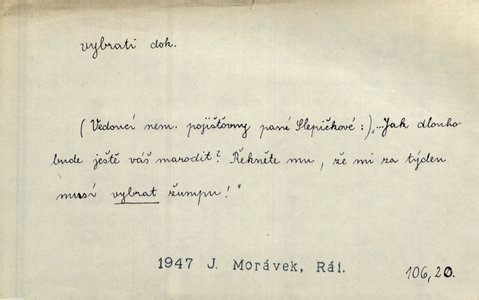 vybrati dok.
(Vedoucí nem. pojišťovny paní Slepičkové:) „...Jak dlouho
bude ještě váš marodit? Řekněte mu, že mi za týden
musí vybrat žumpu!"
1947 J. Morávek, Ráj.
106,20.